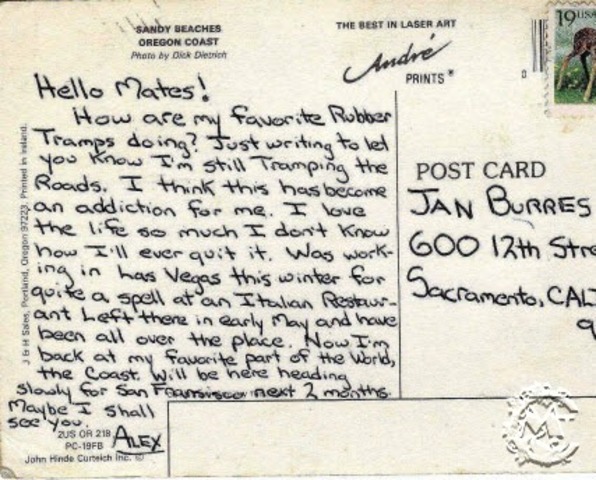 SANDY BEACHES
OREGON COAST
Photo by Dick Dietrich
THE BEST IN LASER ART
André
PRINTS®
19 USA
Hello Mates!
How are my favorite Rubber
Tramps doing? Just writing to let
you know I'm still Tramping the
Roads. I think this has become
an addiction for me. I love
the life so much I don't know
how I'll ever quit it. Was work-
ing in Las Vegas this winter for
quite a spell at an Italian Restaur-
ant Left there in early May and have
been all over the place. Now I'm
back at my favorite part of the World,
the Coast. Will be here heading
slowly for San Fransisco next 2 months.
Maybe I shall
see you.
ALEX
2US OR 218
PC-19FB
John Hinde Curteich Inc. ©
J & H Sales, Portland, Oregon 97223. Printed in Ireland.
POST CARD
JAN BURRES
600 12th Stre
Sacramento, CAL
9